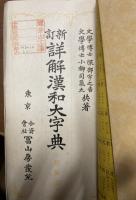 文學博士服部宇之吉
文學博士小柳司氣太
共著
新訂
詳解漢和大字典
東京
合資會社
冨山房發兌